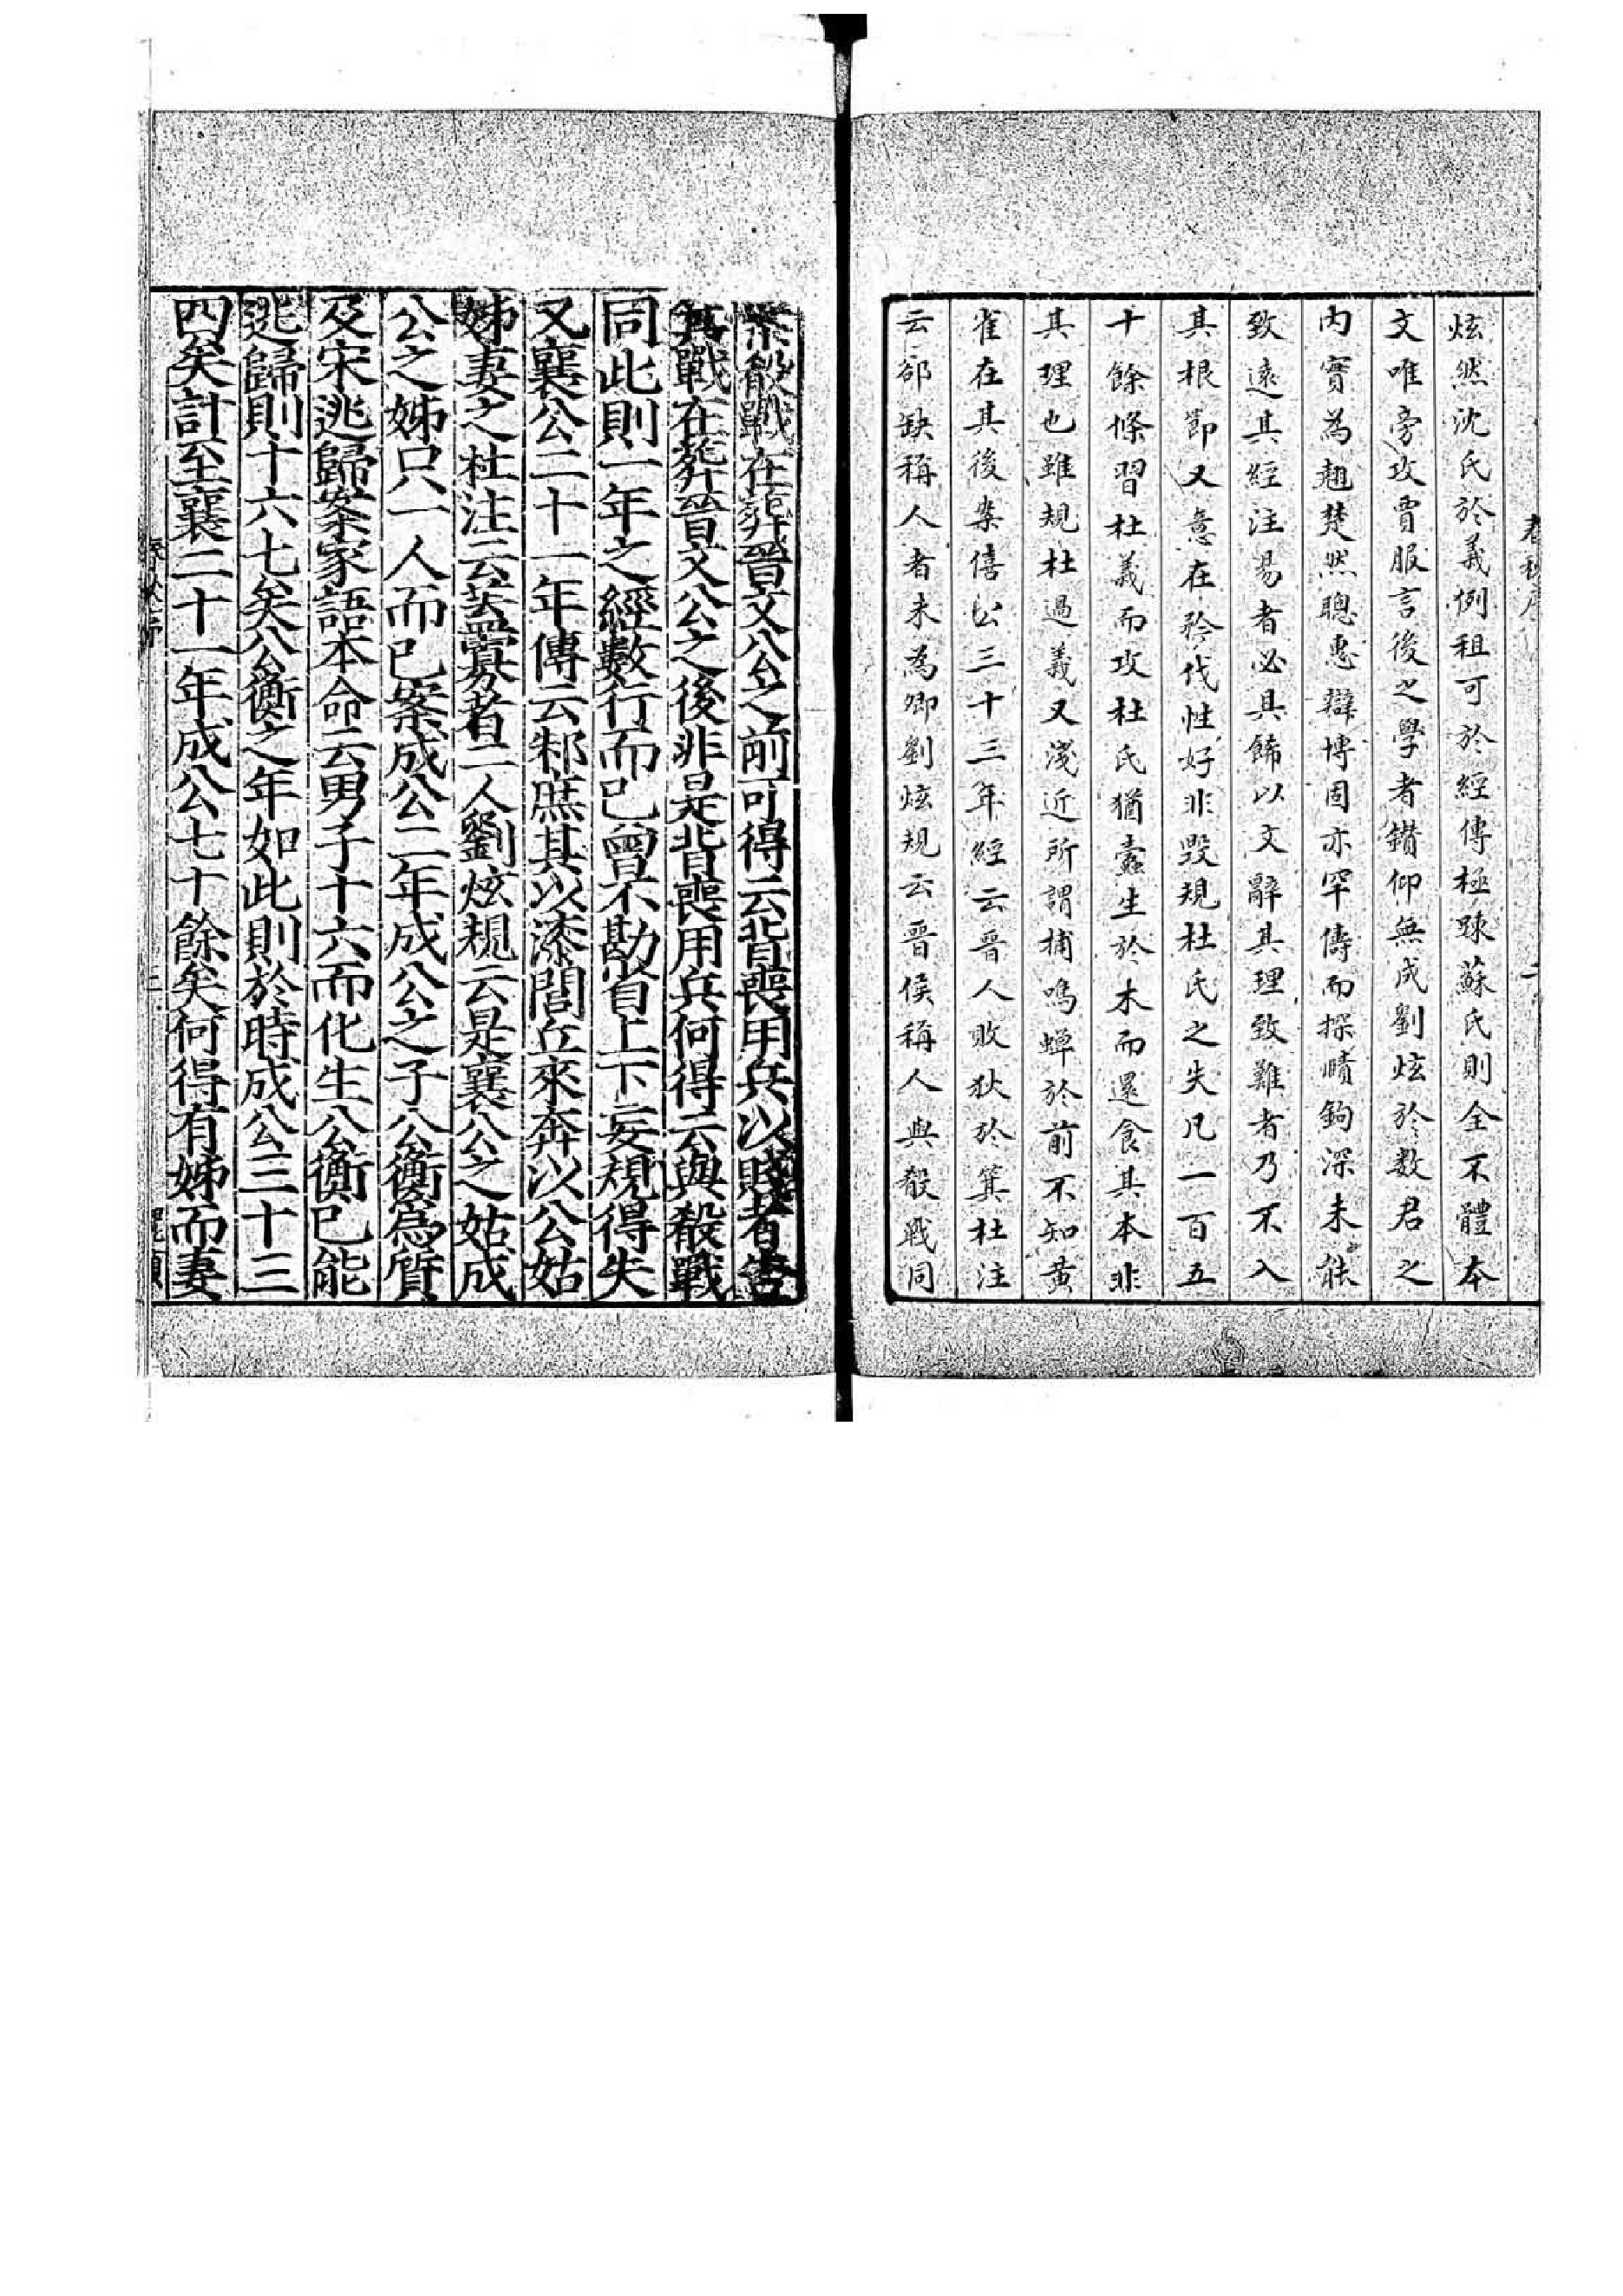 春秋序
二
炫然沈氏於義例粗可於經傳極踈蘇氏則全不體本
文唯旁攻賈服言後之學者鑚仰無成劉炫於数君之
内實為翹楚然聰惠辯博固亦罕儔而探賾鉤深未能
致遠其經注易者必具飾以文辭其理致難者乃不入
其根節又意在矜伐性好非毀規杜氏之失凡一百五
十餘條習杜義而攻杜氏猶蠹生於木而還食其本非
其理也雖規杜過義又淺近所謂捕鳴蟬於前不知黄
雀在其後案僖公三十三年經云晉人敗狄於箕杜注
云郤缺稱人者未為卿劉炫規云晉侯稱人與殽戰同
案殽戰在葬晉文公之前可得云背喪用兵以賤者告
箕戰在葬晉文公之後非是背喪用兵何得云與殽戰
同此則一年之經數行而已曾不勘省上下妄規得失
又襄公二十一年傳云邾庶其以漆閭丘來奔以公姑
姊妻之杜注云蓋寡者二人劉炫規云是襄公之姑成
公之姊只一人而已案成公二年成公之子公衡爲質
及宋逃歸案家語本命云男子十六而化生公衡已能
逃歸則十六七矣公衡之年如此則於時成公三十三
四矣計至襄二十一年成公七十餘矣何得有姊而妻